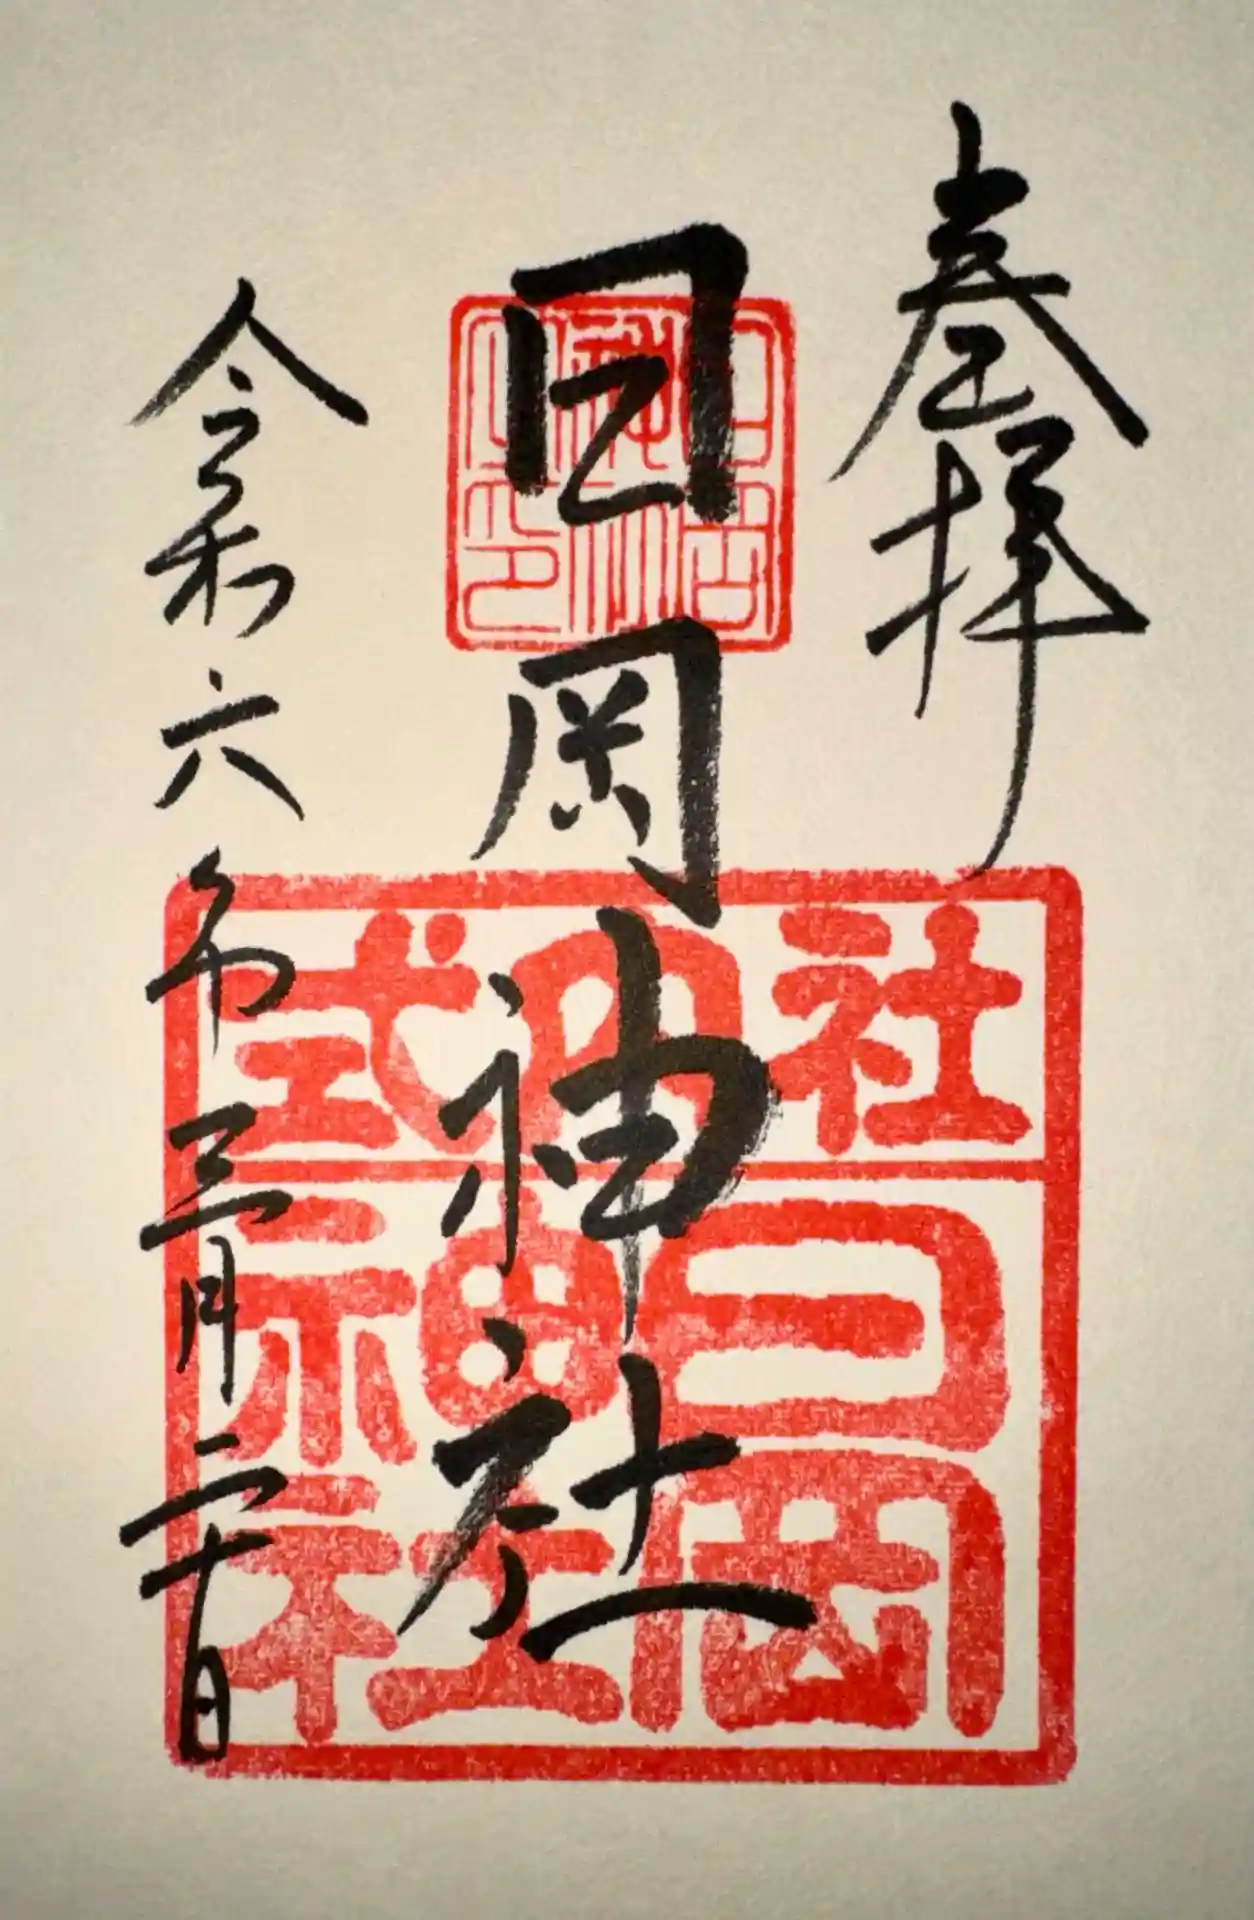 奉拝
日岡神社
令和六年三月二十日
式内社
日岡
神社